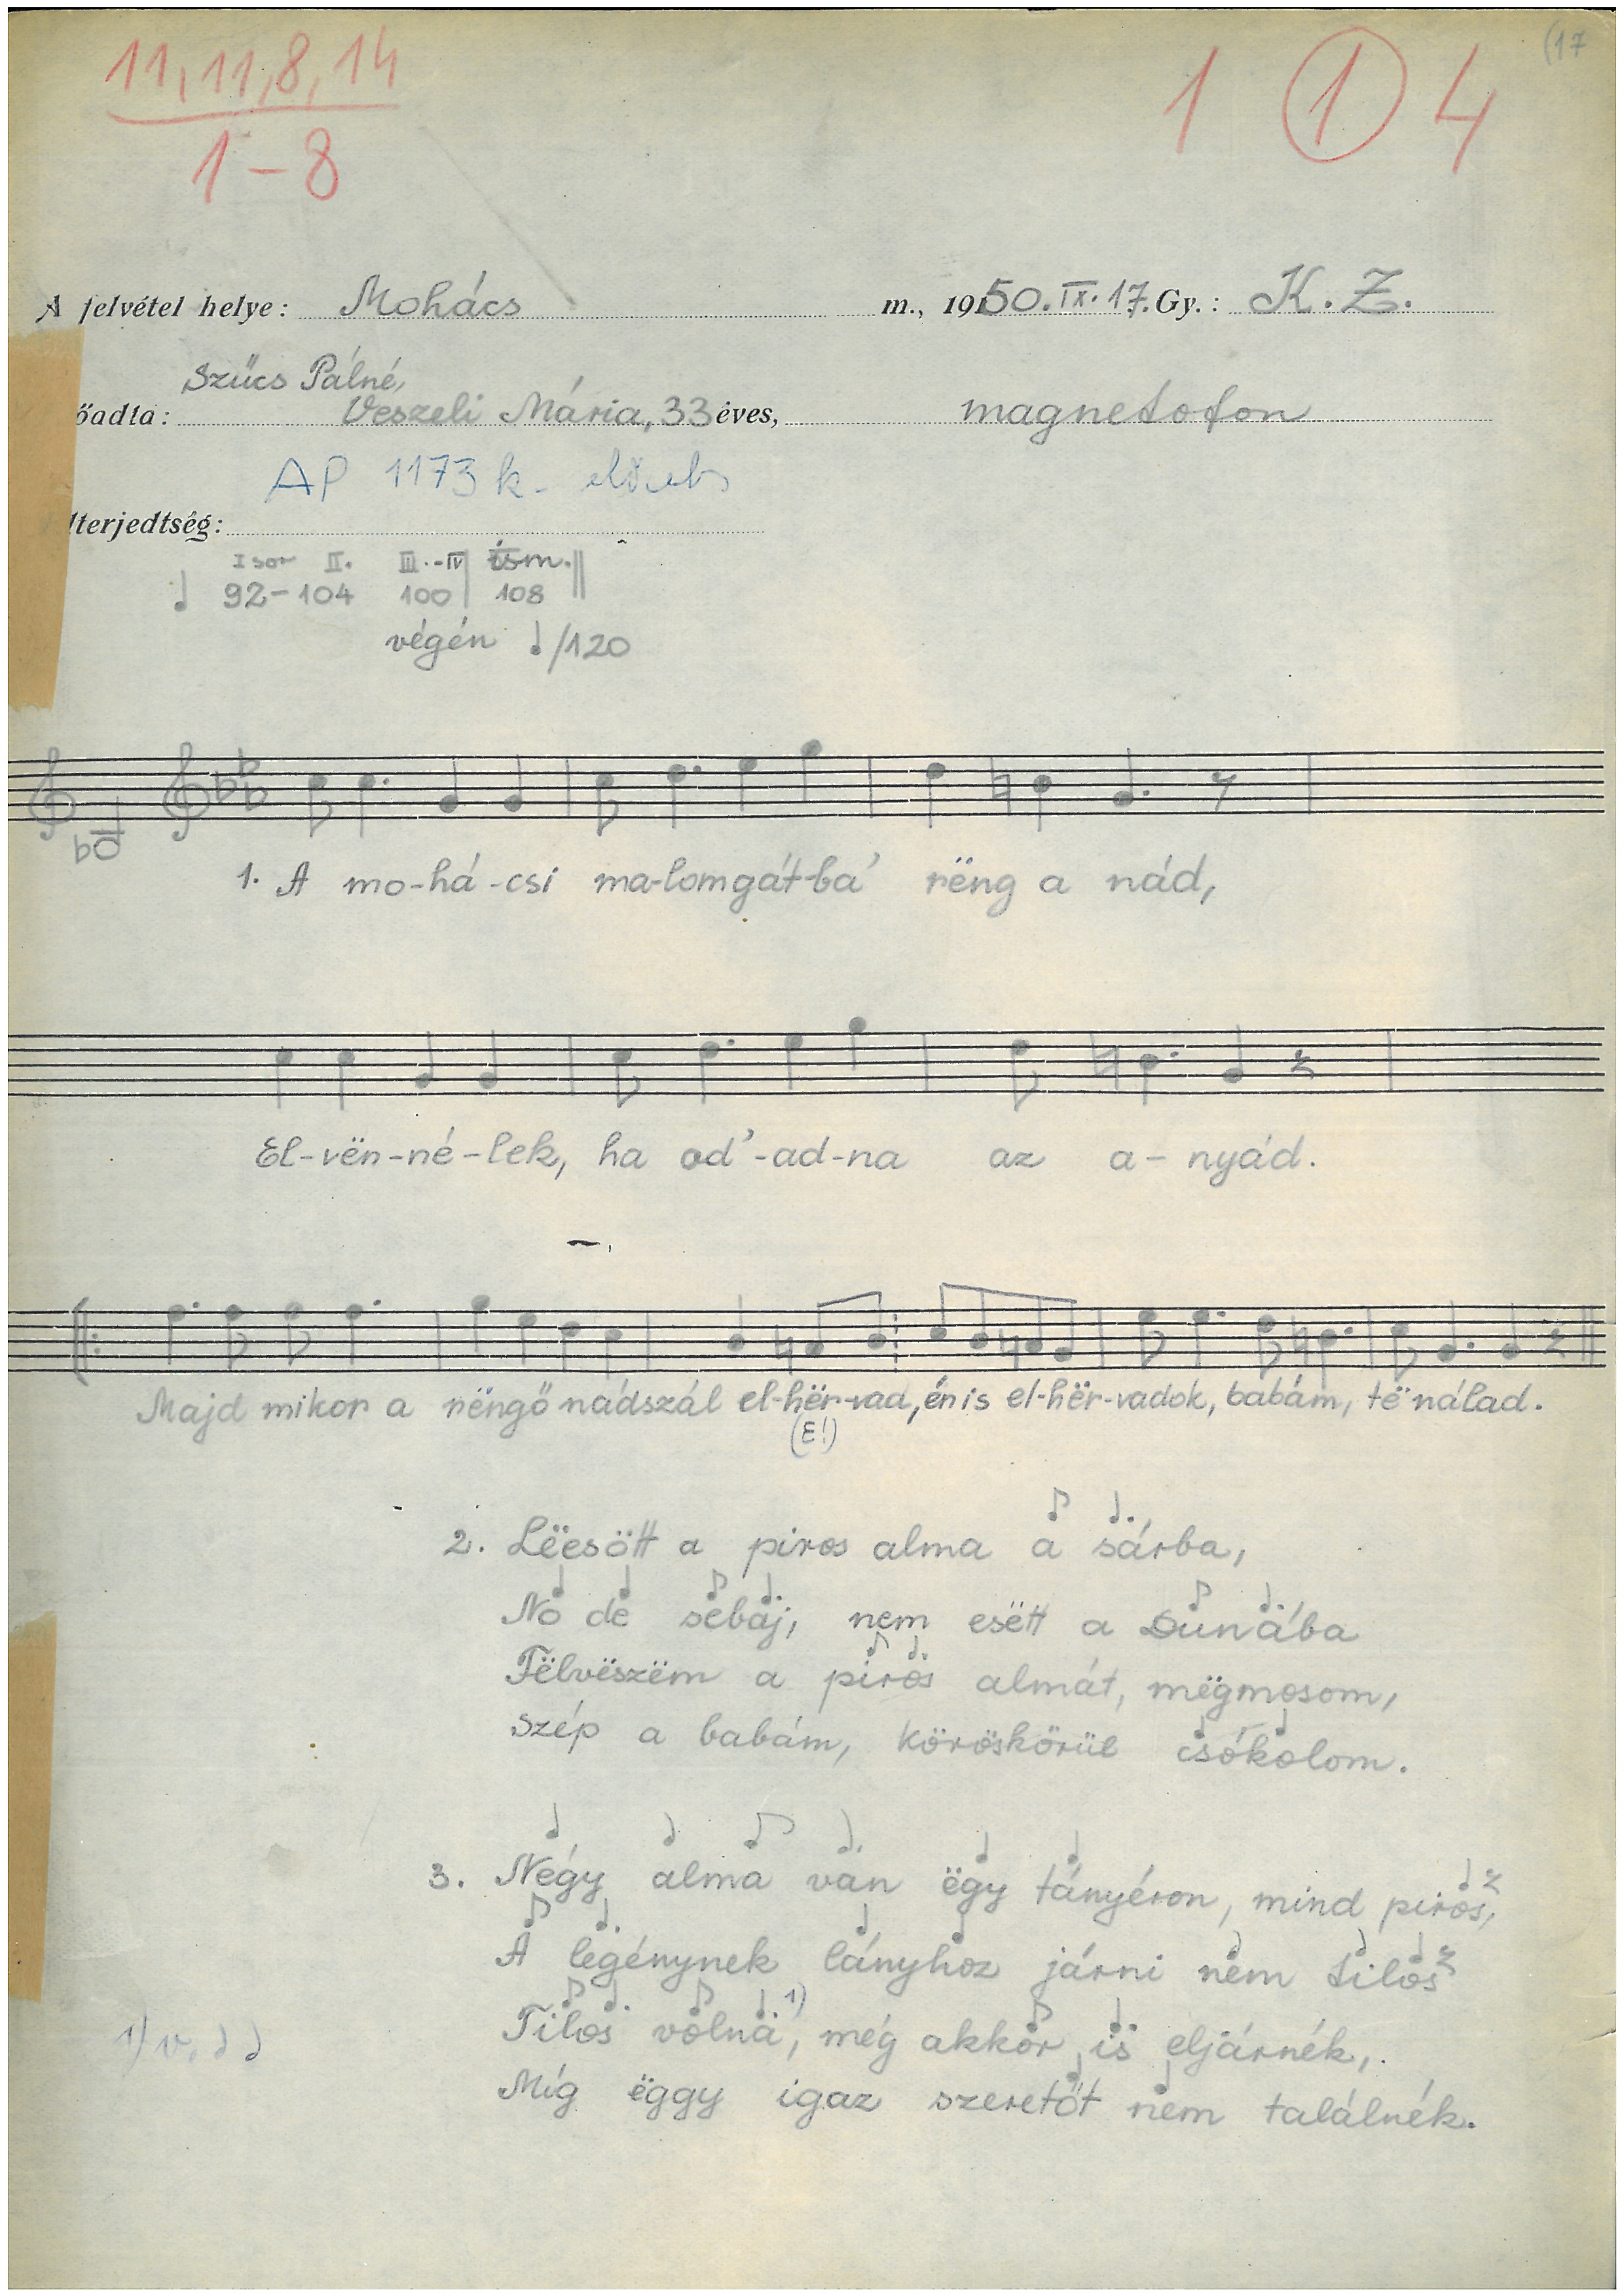 11,11,8,14
1-8
1 1 4
(17
A felvétel helye: Mohács m., 1950. IX. 17. Gy.: K. Z.
Szűcs Pálné,
őadta: Veszeli Mária, 33 éves, magnetofon
AP 1173 k
lterjedtség:
I sor II. III.-IV ism.
92-104 100 108
végén /120
1. A mo-há-csi ma-lomgát-ba' rëng a nád,
El-vën-né-lek, ha od'-ad-na az a-nyád.
Majd mikor a rëngő nádszál el-hër-vad, én is el-hër-vadok, babám, të nálad.
(E!)
2. Lëesött a piros alma a sárba,
No de sebaj, nem esëtt a Dunába
Fëlvëszëm a piros almát, mëgmosom,
Szép a babám, köröskörül csókolom.
3. Négy alma van ëgy tányéron, mind piros,
A legénynek lányhoz járni nem tilos
Tilos volna, 1) még akkor is eljárnék,
Míg ëggy igaz szeretőt nem találnék.
1) v.